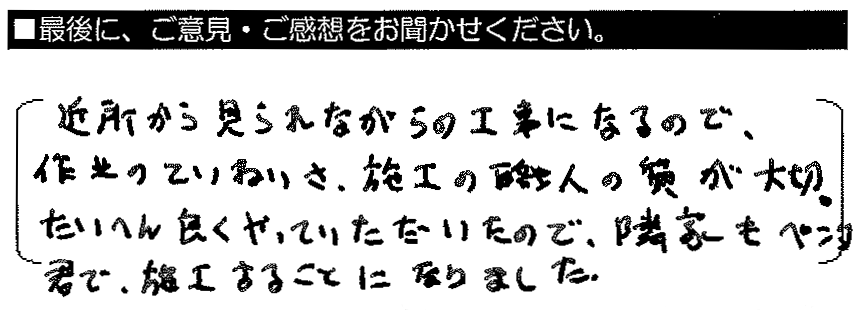 ■最後に、ご意見・ご感想をお聞かせください。
近所から見られながらの工事になるので、
作業のていねいさ、施工の職人の質が大切。
たいへん良くやっていただいたので、隣家もペンタ
君で、施工することになりました。